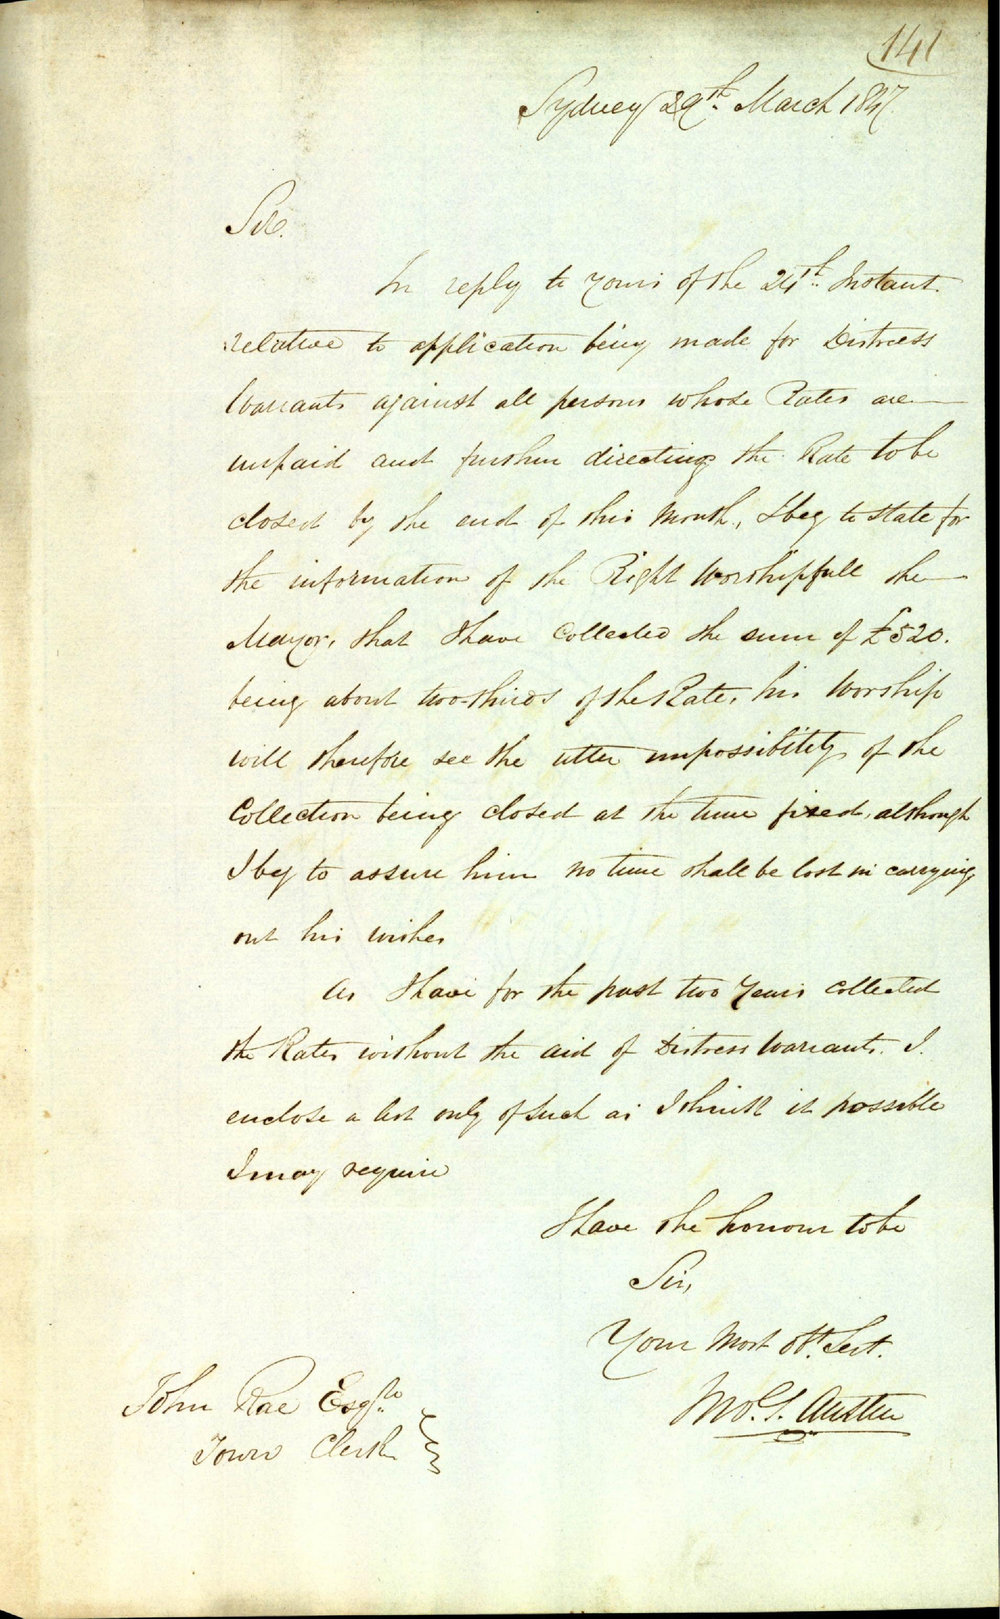 141
Sydney 29th. March 1847.
Sir.
In reply to Yours of the 24th. Instant.
relative to application being made for Distress
Warrants against all persons whose Rates are
unpaid and further directing the Rate to be
closed by the end of this Month, I beg to state for
the information of the Right Worshipfull the
Mayor, that I have Collected the sum of £520.
being about two-thirds of the Rate, his Worship
will therefore see the utter impossibility of the
Collection being closed at the time fixed, although
I beg to assure him no time shall be lost in carrying
out his wishes
As I have for the past two Years collected
the Rates without the aid of Distress Warrants. I.
enclose a list only of such as I think it possible
I may require
I have the honour to be
Sir,
Your Most Obt. Servt.
Austin
John Rae Esqre.
Town Clerk